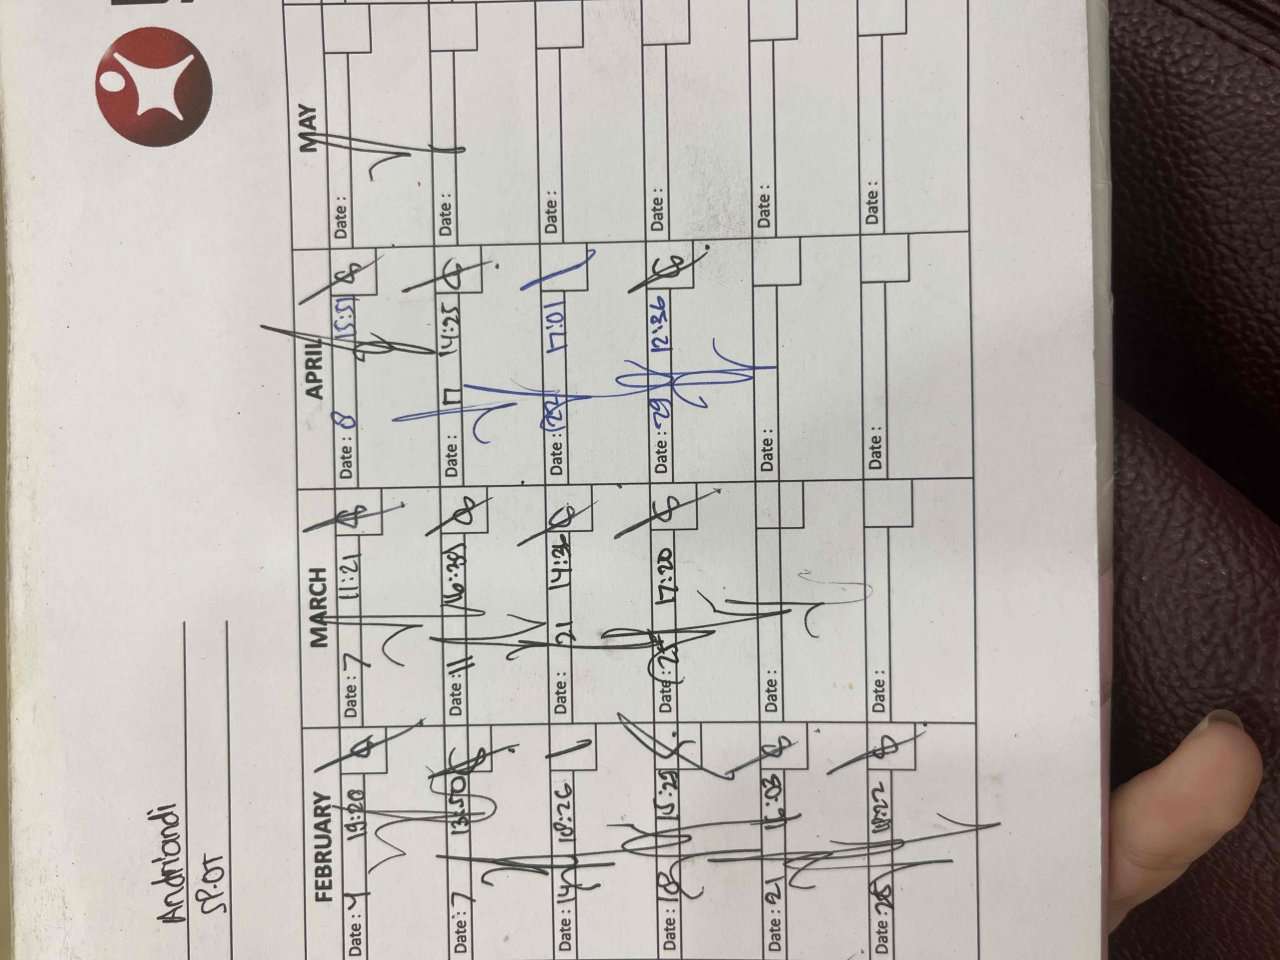 Andriandi
SP.OT
FEBRUARY MARCH APRIL MAY
Date : 4 19:20 Date : 7 11:21 Date : 8 15:51 Date :
Date : 7 13:50 Date : 11 16:39 Date : 17 14:25 Date :
Date : 14 18:26 Date : 21 14:3 Date : 22 17:01 Date :
Date : 18 15:29 Date : 25 17:20 Date : 29 12:36 Date :
Date : 21 16:03 Date : Date : Date :
Date : 25 Date : Date : Date :